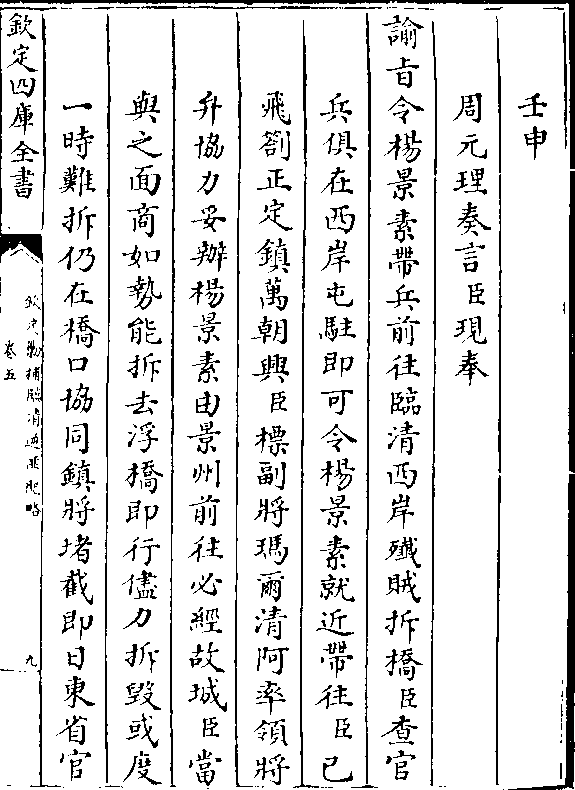 壬申
周元理奏言臣現奉
諭旨令楊景素帶兵前往臨清西岸殲賊拆橋臣查官
兵俱在西岸屯駐即可令楊景素就近帶往臣已
飛劄正定鎮萬朝興臣標副將瑪爾清阿率領將
弁協力妥辦楊景素由景州前往必經故城臣當
與之面商如勢能拆去浮橋即行儘力拆毀或度
一時難拆仍在橋口協同鎮將堵截即日東省官
欽定四庫全書
欽定勦捕臨清逆匪紀略
卷五
九